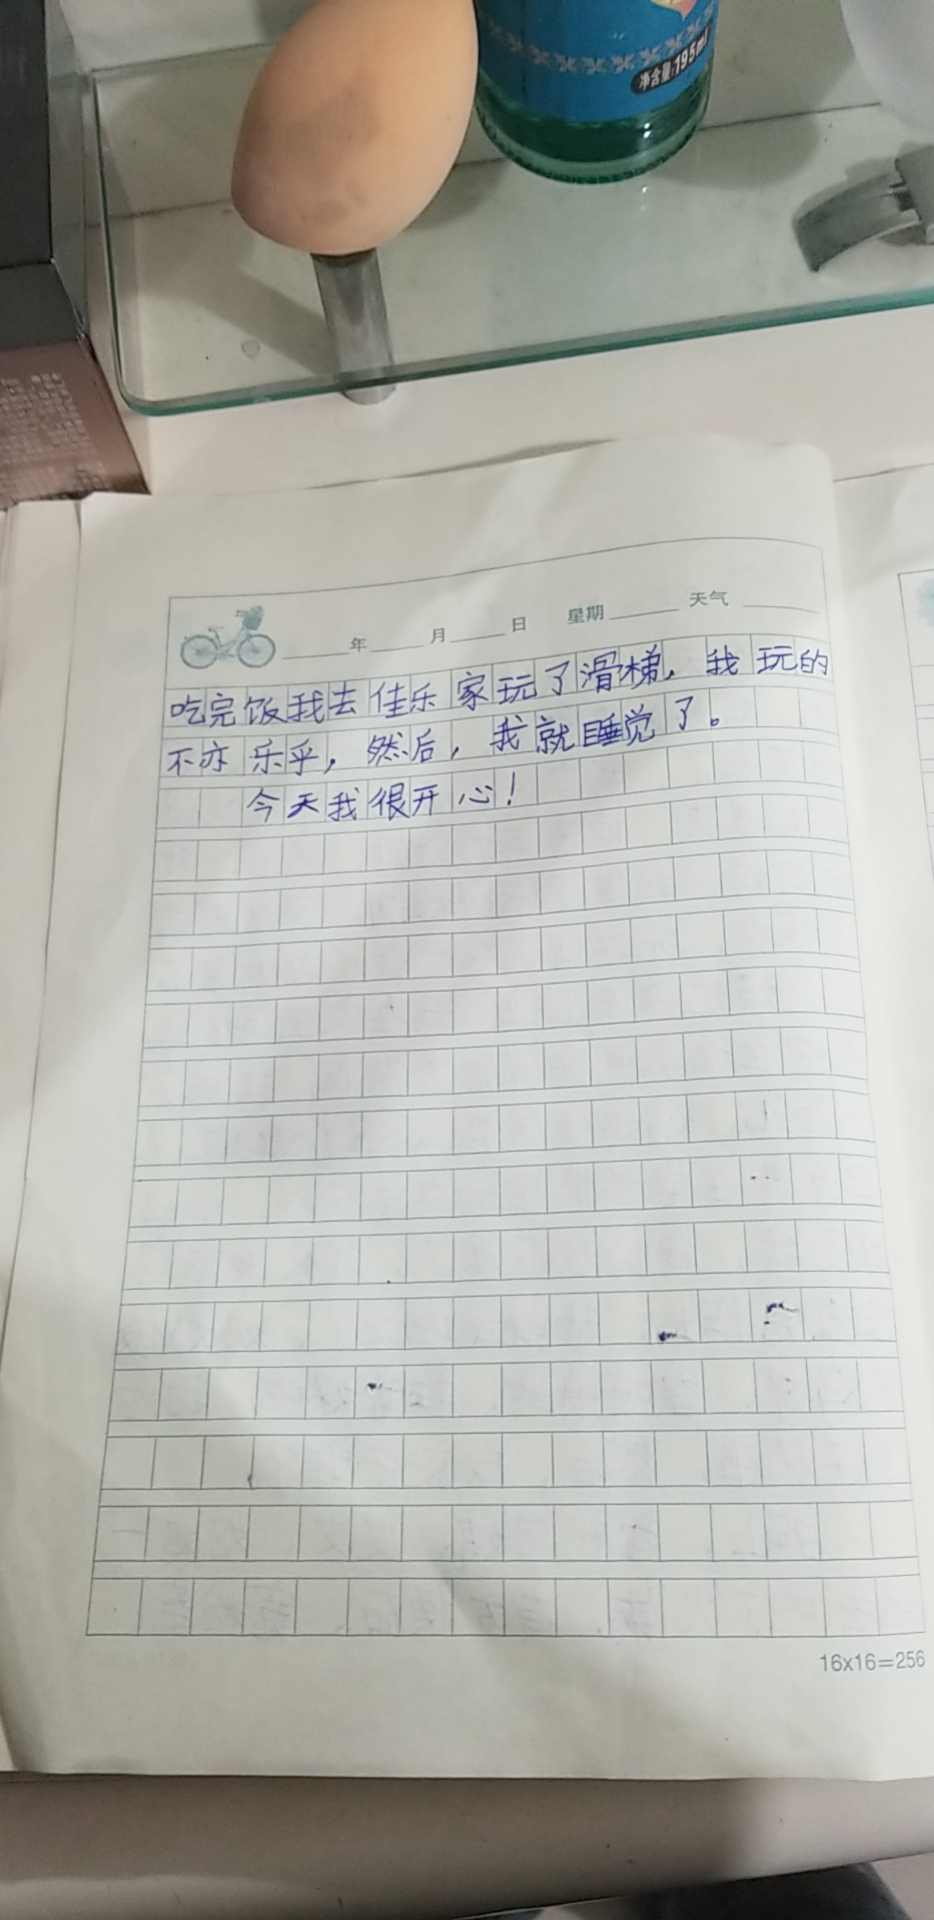 净含量:195ml
年 月 日 星期 天气
吃完饭我去佳乐家玩了滑梯，我玩的
不亦乐乎，然后，我就睡觉了。
今天我很开心！
16x16=256